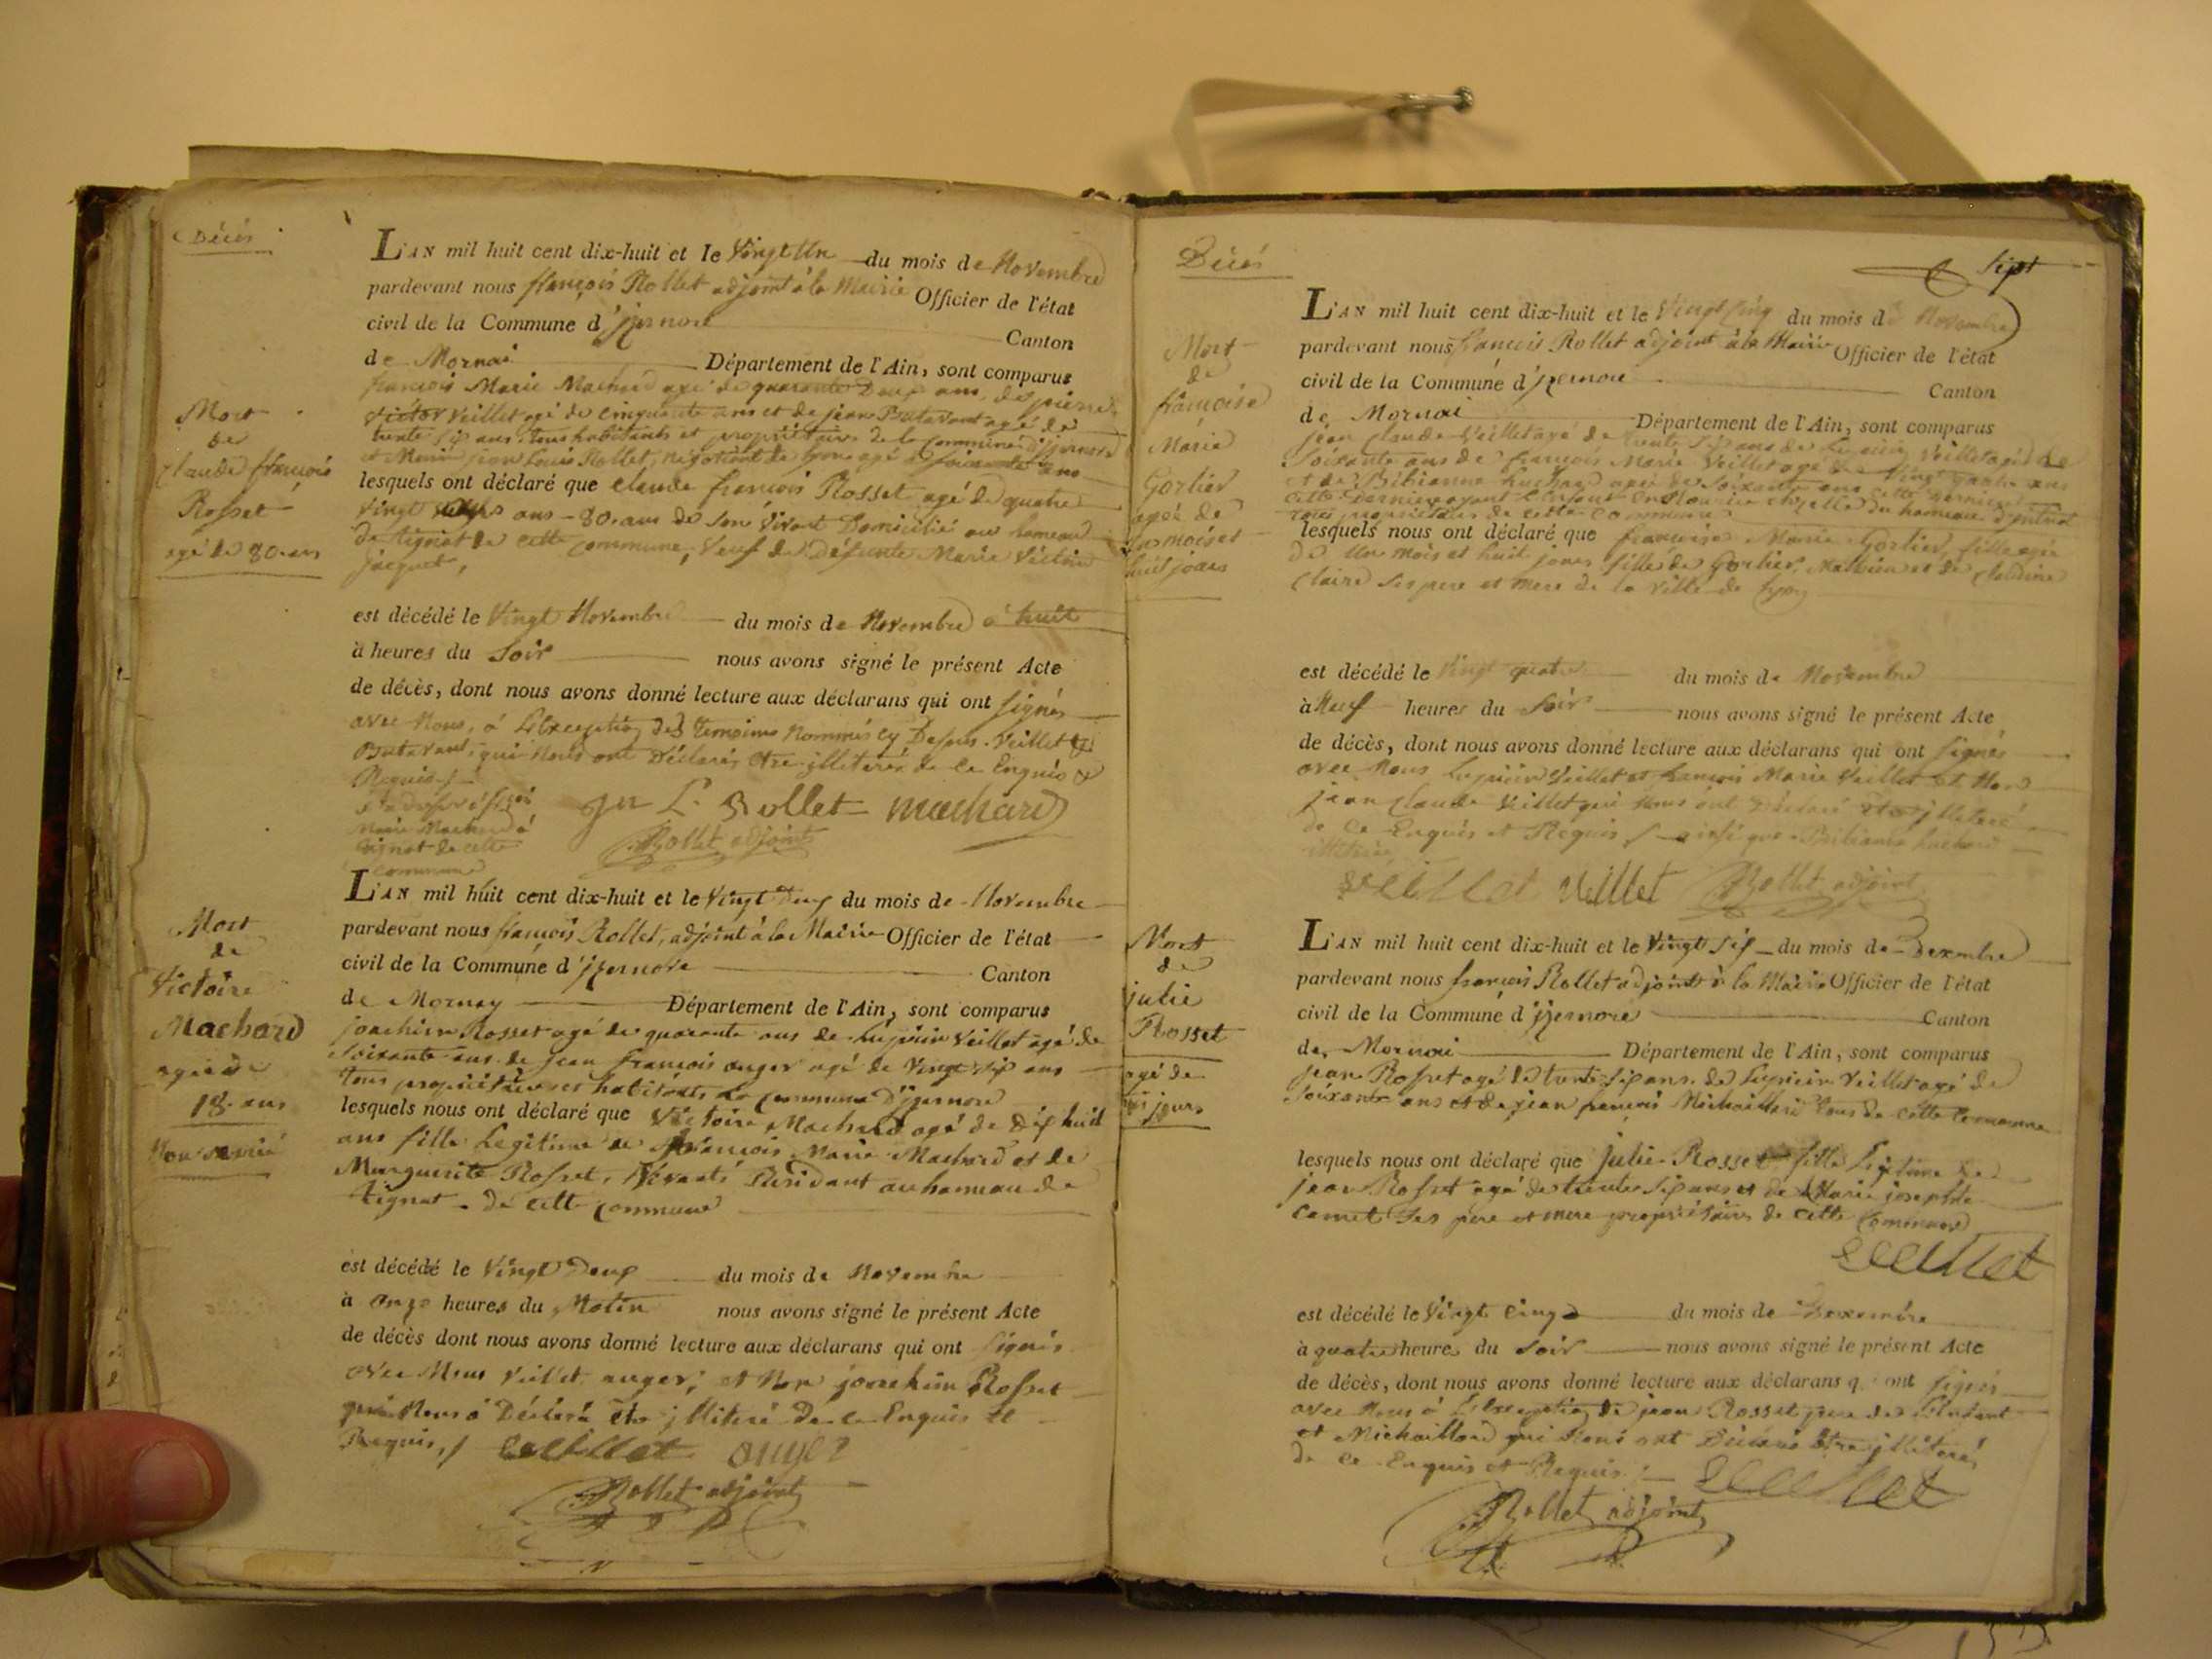 Décés
Mort
de
Claude françois
Rosset
agé de 80 ans
L'AN mil huit cent dix-huit et le Vingt Un du mois de Novembre
pardevant nous françois Rollet adjoint à la Mairie Officier de l'état
civil de la Commune d'jzernore Canton
de Mornai Département de l'Ain, sont comparus
françois Marie Machard agé de quarante Deux ans, de pierre
Victor Veillet agé de cinquante ans et de jean Butavant agé de
trente six ans tous habitants et propriétaires de la Commune d'jzernore
jean Louis Rollet, négotiant de Lyon agé de soixante ans
lesquels ont déclaré que Claude françois Rosset agé de quatre
Vingt ans - 80. ans de Son Vivant Domicilié au hameau
de tignat de cette Commune, Veuf de Défunte Marie
jacquet,
est décédé le Vingt Novembre du mois de Novembre à huit
à heures du Soir nous avons signé le présent Acte
de décès, dont nous avons donné lecture aux déclarans qui ont Signés
avec Nous, à L'Exception des temoins Nommés cy Dessus. Veillet &
Butavant, qui Nous ont Déclarés être jlliterés de ce Enquis &
Requis
Marie Machard à
tignat de cette
Commune
jn L. Rollet machard
Rollet adjoint
Mort
de
Victoire
Machard
agée de
18. ans
Non marié
L'AN mil huit cent dix-huit et le Vingt Deux du mois de Novembre
pardevant nous françois Rollet, adjoint à la Mairie Officier de l'état
civil de la Commune d'jzernore Canton
de Mornay Département de l'Ain, sont comparus
joachim Rosset agé de quarante ans de Veillet agé de
Soixante ans de jean françois auger agé de Vingt six ans
tous propriétaires et habitants de Commune D'jzernore
lesquels nous ont déclaré que Victoire Machard agé de Dix huit
ans fille Legitime de françois Marie Machard et de
Marguerite Rosset, Résidant au hameau de
tignat de cette Commune
est décédé le Vingt Deux du mois de Novembre
à onze heures du Matin nous avons signé le présent Acte
de décès dont nous avons donné lecture aux déclarans qui ont Signés
avec Nous Veillet, auger, et Non joachim Rosset
qui Nous à Déclaré être jlliteré de ce Enquis et
Requis, veillet auger
Rollet adjoint
Décés
Sept
Mort
de
françoise
Marie
Gorlier
agée de
un mois et
huit jours
L'AN mil huit cent dix-huit et le Vingt Cinq du mois de Novembre
pardevant nous françois Rollet adjoint à la Mairie Officier de l'état
civil de la Commune d'jzernore Canton
de Mornai Département de l'Ain, sont comparus
jean Claude Veillet agé de trente six ans de Veillet agé de
Soixante ans de françois Marie Veillet agé de Vingt quatre ans
et de Bibianne Luchard agée de Soixante ans cette Derniere
cette Derniere ayant L'Enfant En Nourrice chez elle du hameau
tous propriétaires de cette Commune
lesquels nous ont déclaré que françoise Marie Gorlier, fille agée
de Un mois et huit jours fille de Gorlier, Mathieu et de Claudine
Claire Ses pere et mere de la Ville de Lyon
est décédé le Vingt quatre du mois de Novembre
à Neuf heures du Soir nous avons signé le présent Acte
de décès, dont nous avons donné lecture aux déclarans qui ont Signés
avec Nous Veillet et françois Marie Veillet Et Non
jean Claude Veillet qui Nous ont Déclaré être jlliteré
de ce Enquis et Requis ainsi que Bibianne Luchard
veillet Veillet Rollet adjoint
Mort
de
julie
Rosset
agé de
jours
L'AN mil huit cent dix-huit et le Vingt Six du mois de Dexembre
pardevant nous françois Rollet adjoint à la Mairie Officier de l'état
civil de la Commune d'jzernore Canton
de Mornai Département de l'Ain, sont comparus
jean Rosset agé de trente six ans. de Veillet agé de
Soixante ans et de jean françois Michaillard tous de cette Commune
lesquels nous ont déclaré que julie Rosset fille Legitime de
jean Rosset agé de trente six ans et de Marie josephte
Carret Ses pere et mere propriétaires de cette Commune
veillet
est décédé le Vingt Cinq du mois de Dexembre
à quatre heures du Soir nous avons signé le présent Acte
de décès, dont nous avons donné lecture aux déclarans q ont Signés
avec Nous à L'Exception de jean Rosset pere de L'Enfant
et Michaillard qui Nous ont Déclaré être jlliterés
de ce Enquis et Requis veillet
Rollet adjoint